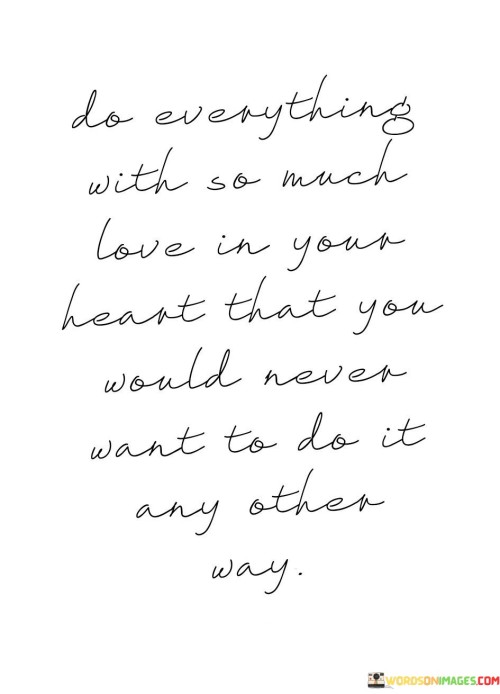 do everything
with so much
love in your
heart that you
would never
want to do it
any other
way.
WORDSONIMAGES.COM